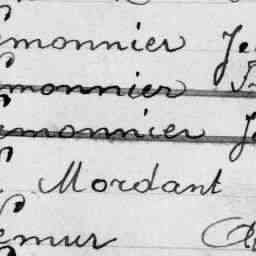 emonnier Je
emonnier
emonnier Je
L Mordant
Lemur